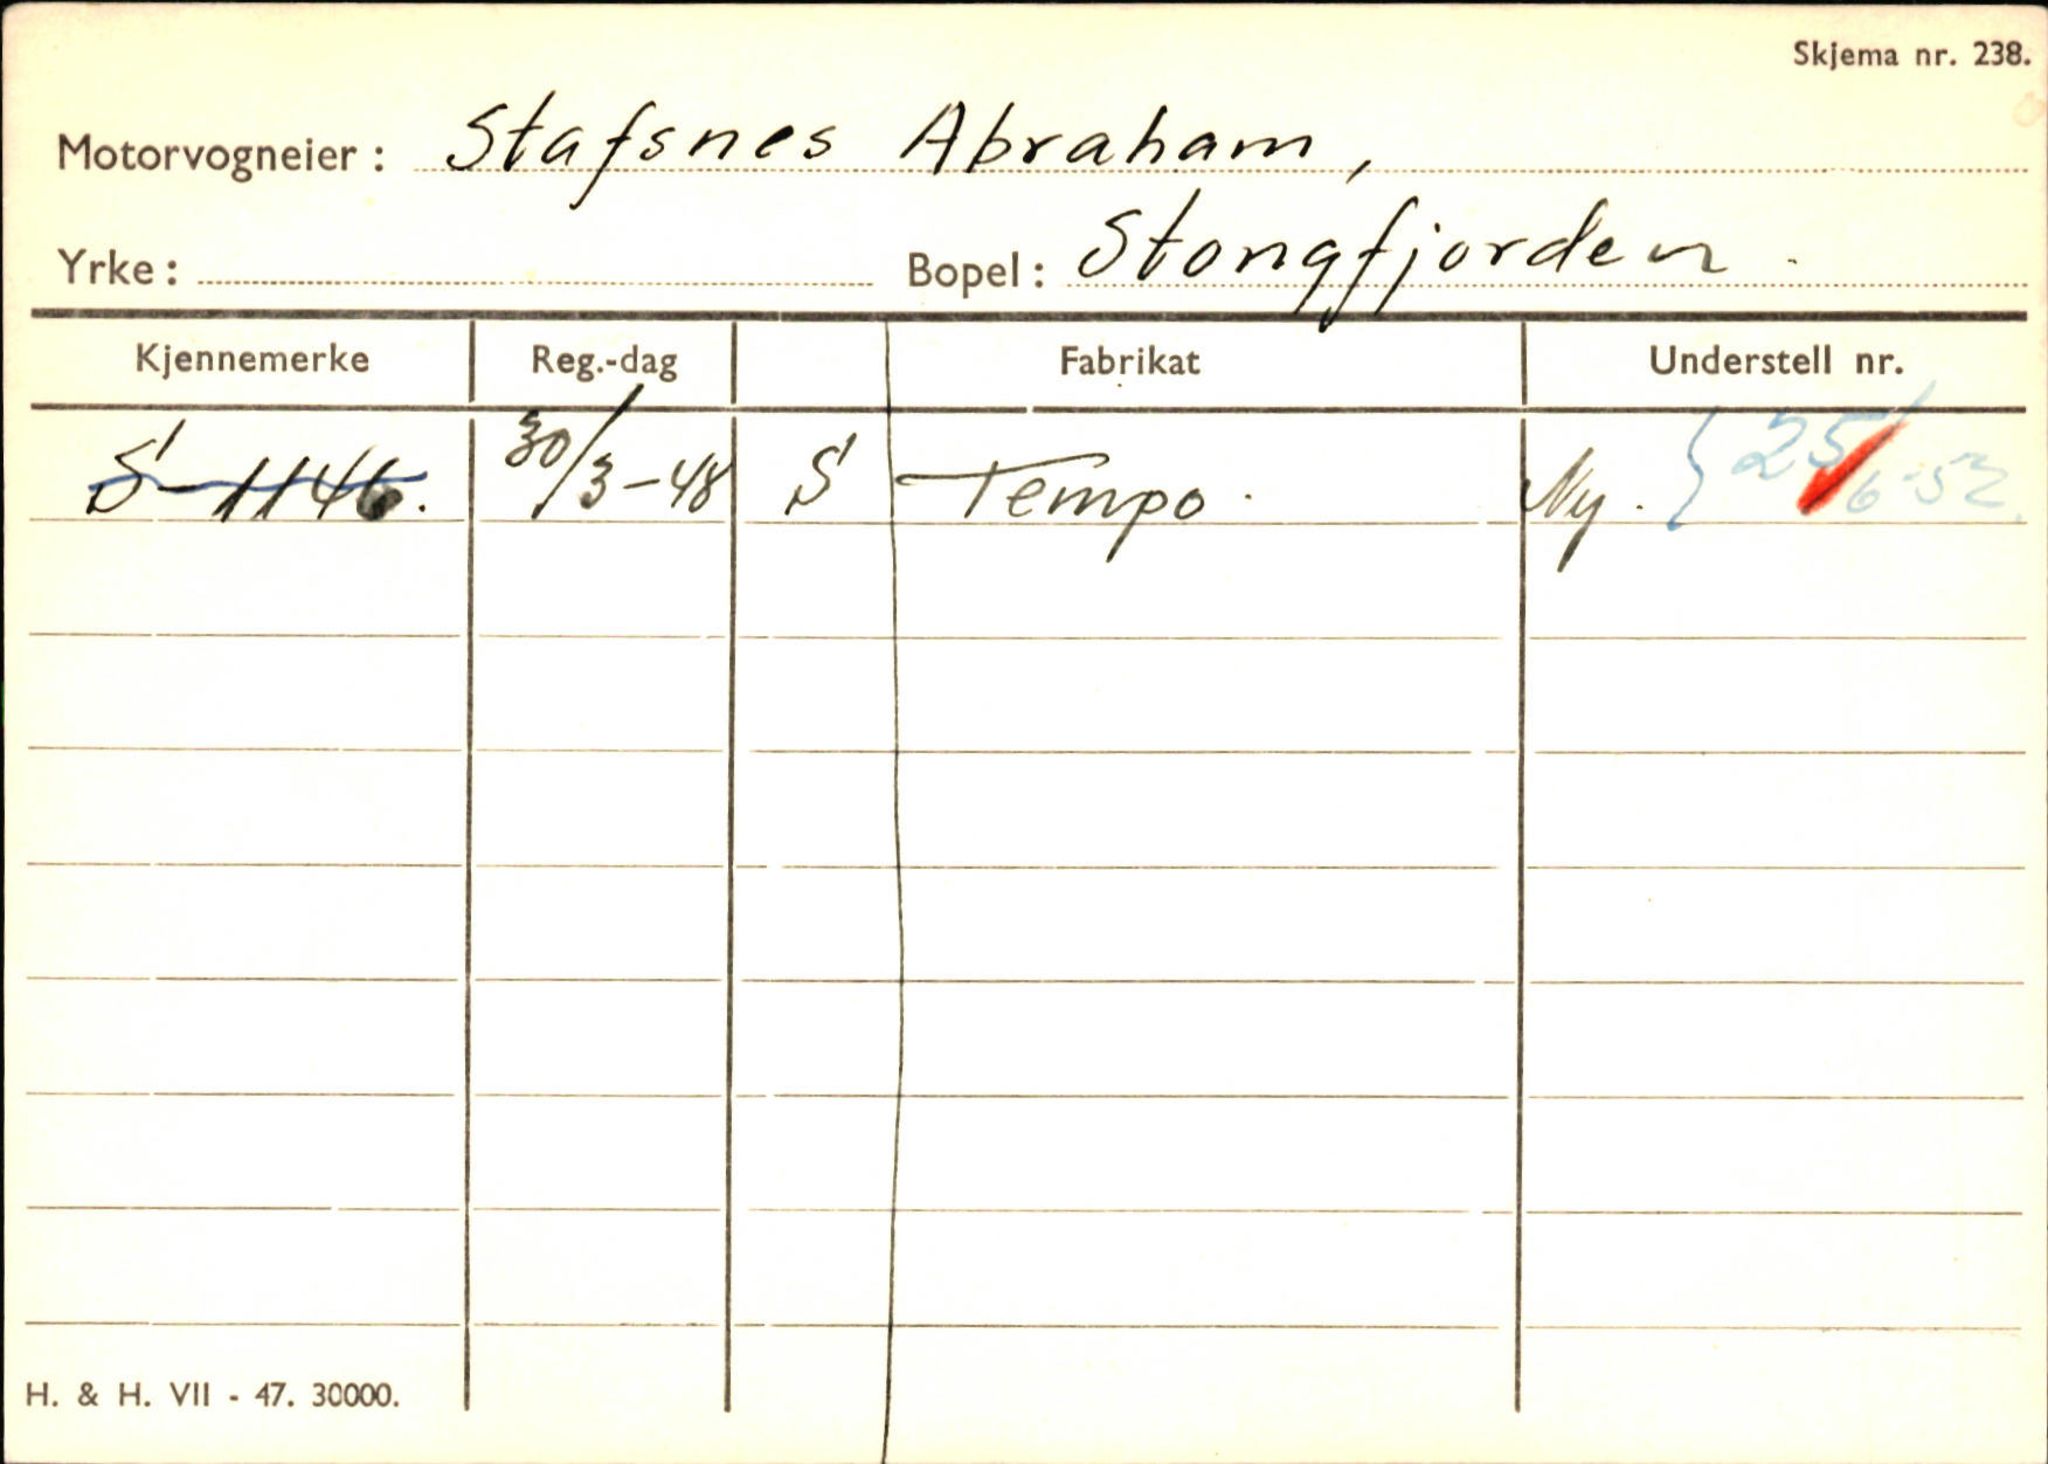 Skjema nr. 238.
Motorvogneier: Stafsnes Abraham,
Yrke: Bopel: Stongfjorden.
Kjennemerke Reg.-dag Fabrikat Understell nr.
S-1146. 30/3-48 S Tempo. Ny. {25/6-52.
H. & H. VII - 47. 30000.